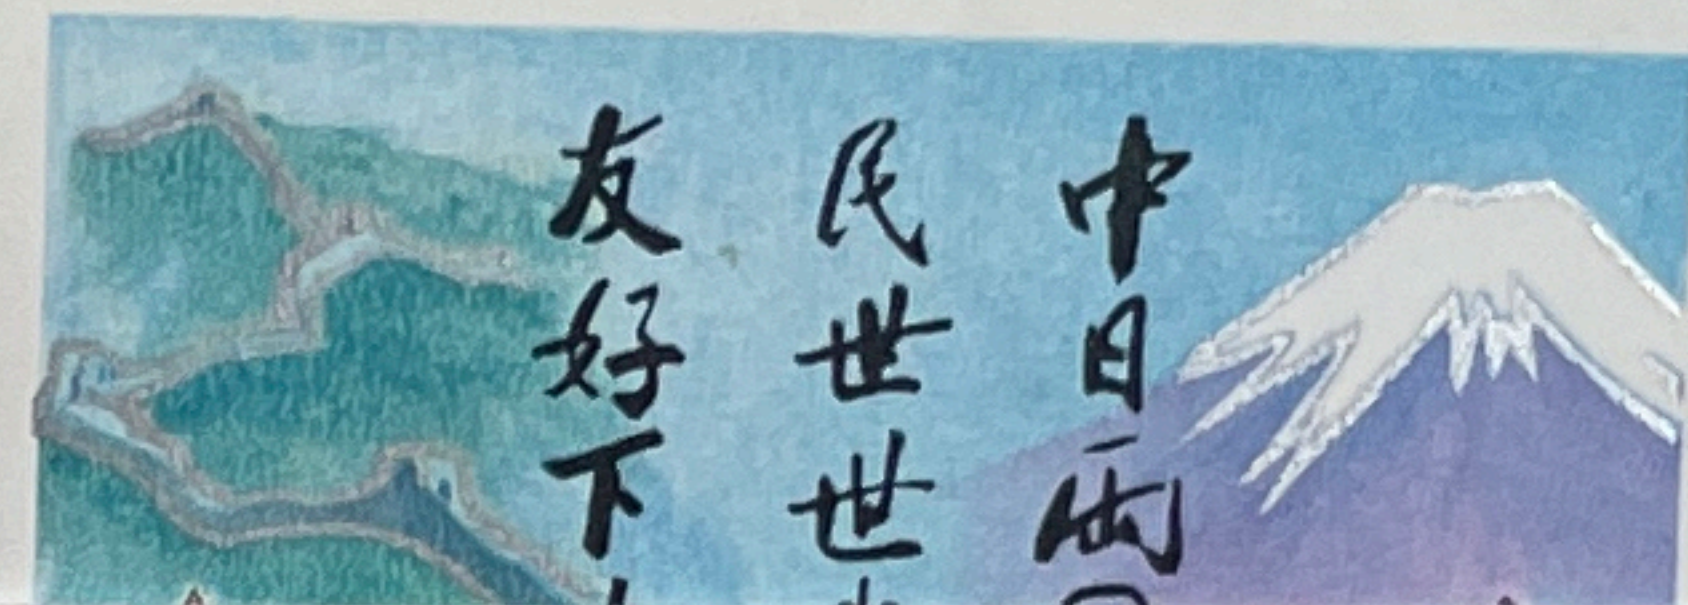 中日两
民世世
友好下